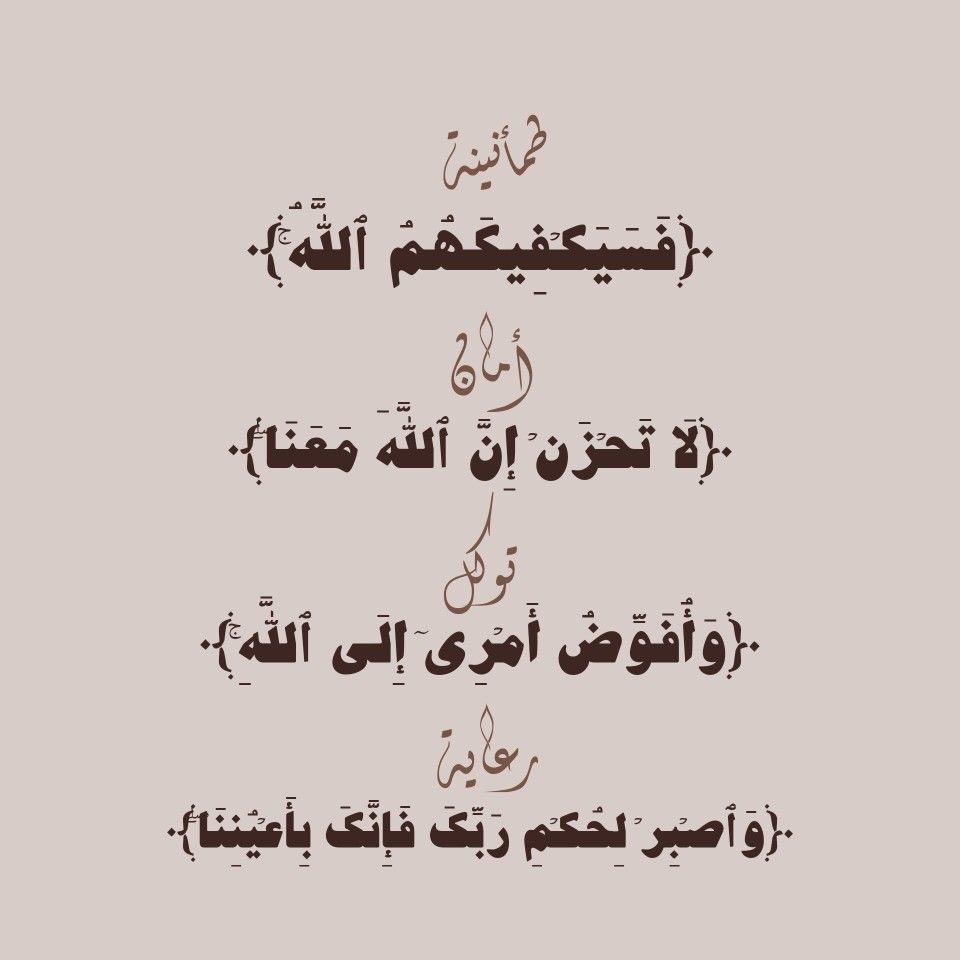 طمأنينة
﴿فَسَيَكۡفِيكَهُمُ ٱللَّهُۚ﴾
أمان
﴿لَا تَحۡزَنۡ إِنَّ ٱللَّهَ مَعَنَاۖ﴾
توكل
﴿وَأُفَوِّضُ أَمۡرِىٓ إِلَى ٱللَّهِۚ﴾
رعاية
﴿وَٱصۡبِرۡ لِحُكۡمِ رَبِّكَ فَإِنَّكَ بِأَعۡيُنِنَاۖ﴾